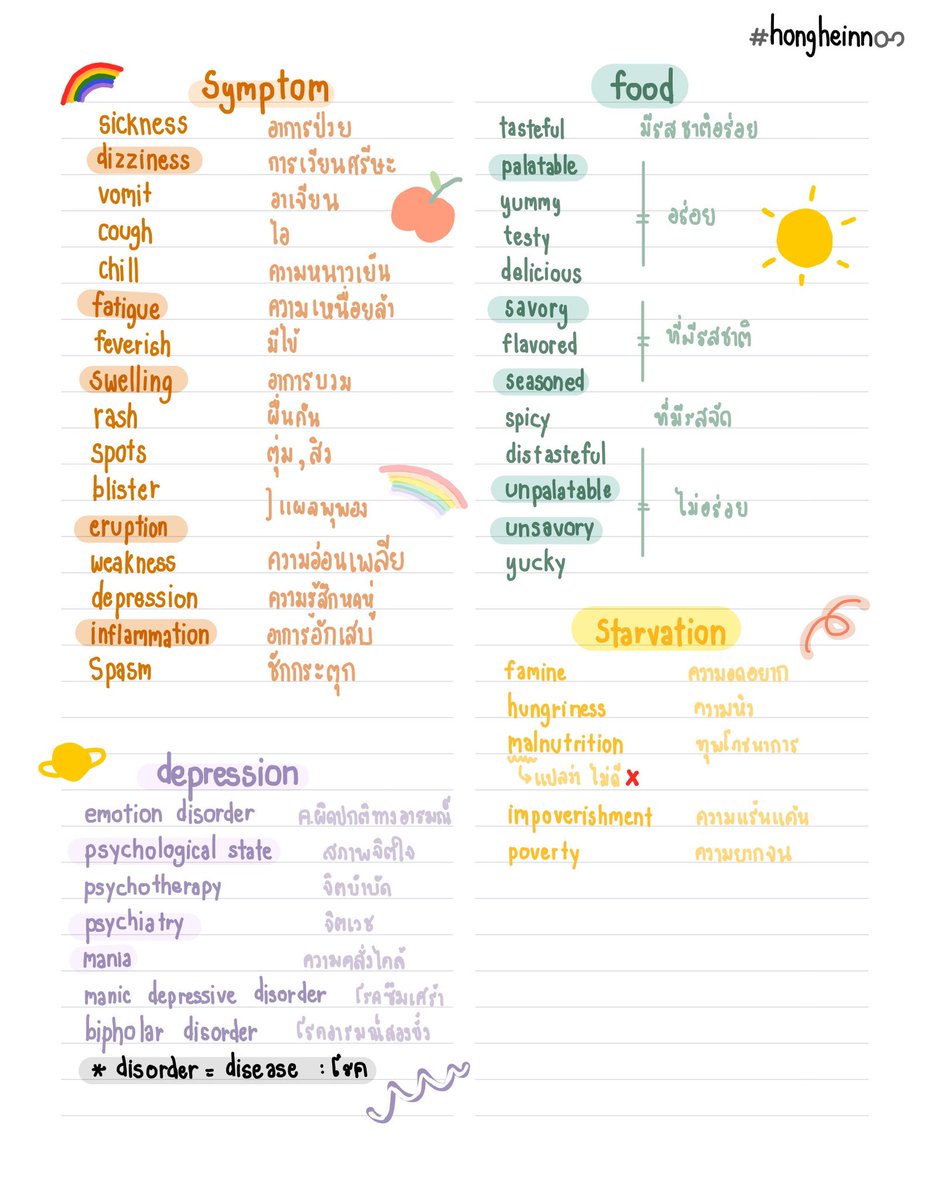 #hongheinn
Symptom
sickness อาการป่วย
dizziness การเวียนศรีษะ
vomit อาเจียน
cough ไอ
chill ความหนาวเย็น
fatigue ความเหนื่อยล้า
feverish มีไข้
swelling อาการบวม
rash ผื่นคัน
spots ตุ่ม, สิว
blister
] แผลพุพอง
eruption
weakness ความอ่อนเพลีย
depression ความรู้สึกหดหู่
inflammation อาการอักเสบ
Spasm ชักกระตุก
depression
emotion disorder ค.ผิดปกติทางอารมณ์
psychological state สภาพจิตใจ
psychotherapy จิตบำบัด
psychiatry จิตเวช
mania ความคลั่งไคล้
manic depressive disorder โรคซึมเศร้า
bipholar disorder โรคอารมณ์สองขั้ว
* disorder = disease : โรค
food
tasteful มีรสชาติอร่อย
palatable
yummy อร่อย
testy
delicious
savory
flavored ที่มีรสชาติ
seasoned
spicy ที่มีรสจัด
distasteful
unpalatable ไม่อร่อย
unsavory
yucky
Starvation
famine ความอดอยาก
hungriness ความหิว
malnutrition ทุพโภชนาการ
แปลว่า ไม่ดี x
impoverishment ความแร้นแค้น
poverty ความยากจน